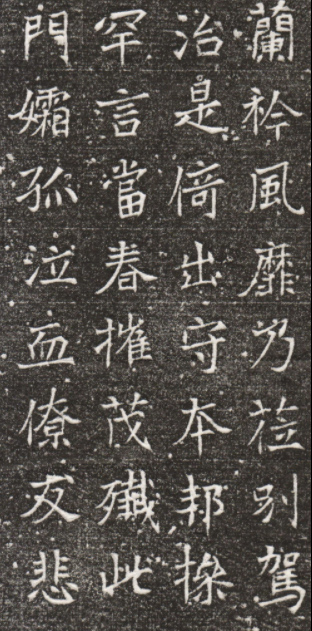 蘭衿風靡乃莅別駕
治是倚出守本邦操
罕言當春摧茂殲此
門孀孤泣血僚友悲